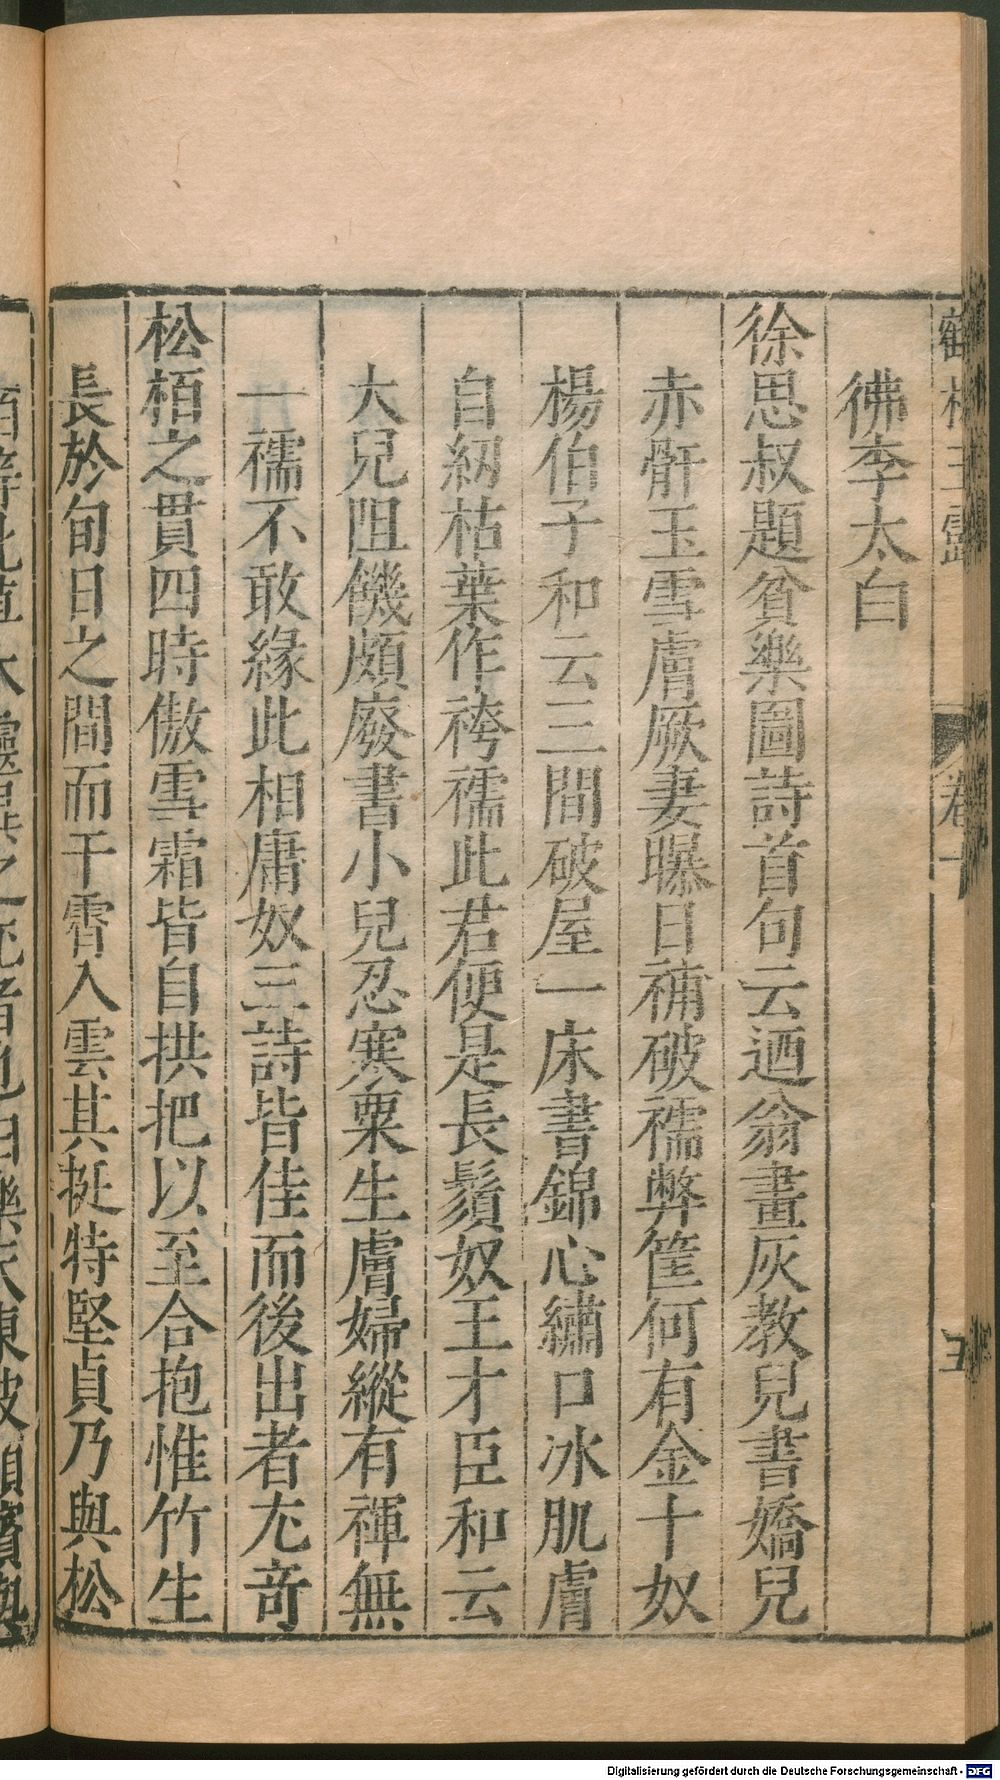 彿李太白
徐思叔題貧樂圖詩首句云廼翁畫灰教兒書嬌兒
赤骭玉雪膚厥妻曝日補破襦弊筐何有金十奴
楊伯子和云三間破屋一床書錦心繡口冰肌膚
自紉枯葉作袴襦此君便是長鬚奴王才臣和云
大兒阻饑頗廢書小兒忍寒粟生膚婦縱有褌無
一襦不敢緣此相庸奴三詩皆佳而後出者尤竒
松栢之貫四時傲雪霜皆自拱把以至合抱惟竹生
長於旬日之間而干霄入雲其挺特堅貞乃與松
卷十
Digitalisierung gefördert durch die Deutsche Forschungsgemeinschaft - DFG